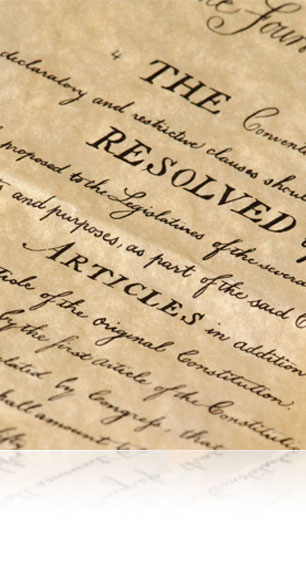 THE Conventi
declaratory and restrictive clauses shou
RESOLVED
proposed to the Legislatures of the severa
and purposes, as part of the said
ARTICLES in addition
ticle of the original Constitution.
by the first article of the Constitu
by Congress, that
hall amount